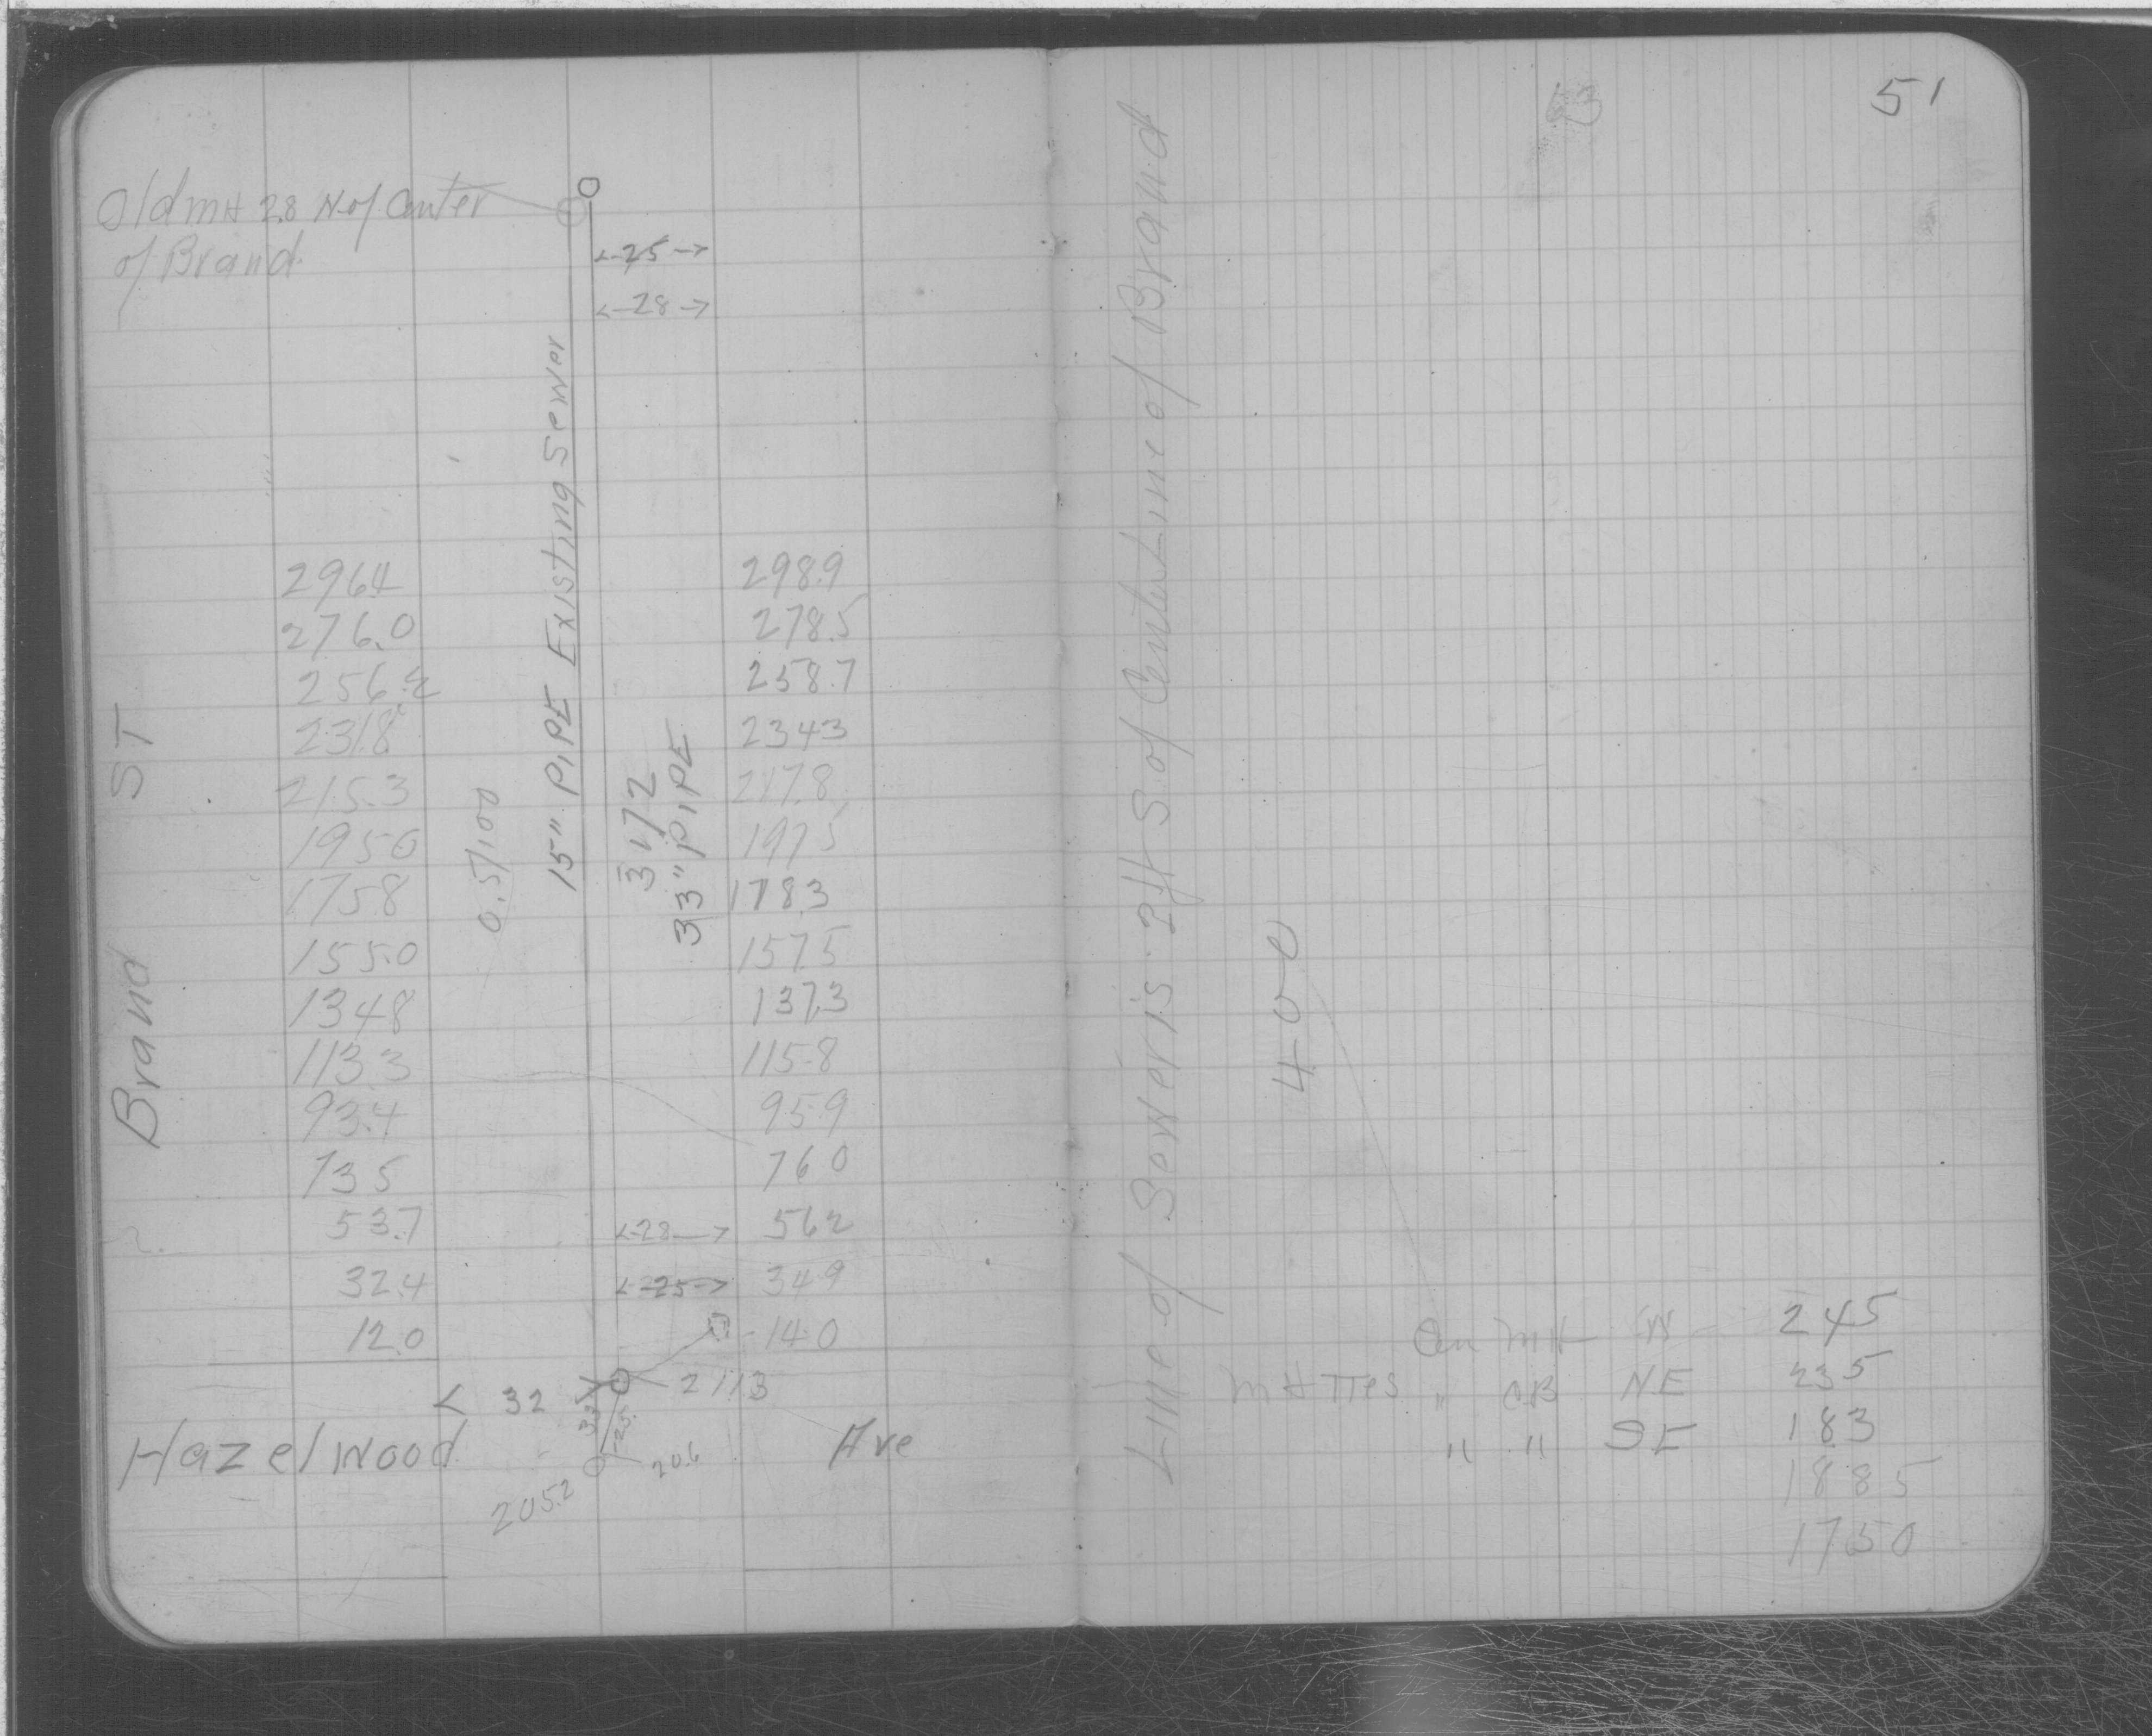 51
Old MH 2.8 N. of Center
of Brand.
<-25->
<-28->
15" PIPE Existing Sewer
3172
33" PIPE
0.5/100
Brand ST
296.4 298.9
276.0 278.5
256.2 258.7
231.8 234.3
215.3 217.8
195.0 197.5
175.8 178.3
155.0 157.5
134.8 137.3
113.3 115.8
93.4 95.9
73.5 76.0
53.7 <-28-> 56.2
32.4 <-25-> 34.9
12.0 14.0
< 32 33 25 211.3
Hazelwood Ave
205.2 20.6
Line of Sewer is 2 ft S. of Center Line of Brand
400
Cen MH W 245
MH Ties " CB NE 235
" " SE 183
1885
1750